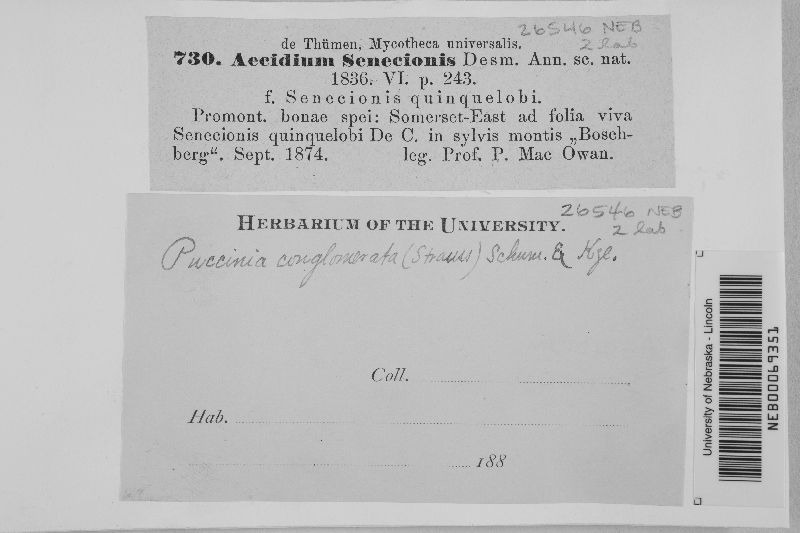 26546 NEB
2 lab
de Thümen, Mycotheca universalis.
730. Aecidium Senecionis Desm. Ann. sc. nat.
1836. VI. p. 243.
f. Senecionis quinquelobi.
Promont. bonae spei: Somerset-East ad folia viva
Senecionis quinquelobi De C. in sylvis montis „Bosch-
berg“. Sept. 1874. leg. Prof. P. Mac Owan.
26546 NEB
2 lab
HERBARIUM OF THE UNIVERSITY.
Puccinia conglomerata (Strauss) Schum. & Kze.
Coll.
Hab.
188
University of Nebraska - Lincoln
NEB00069351